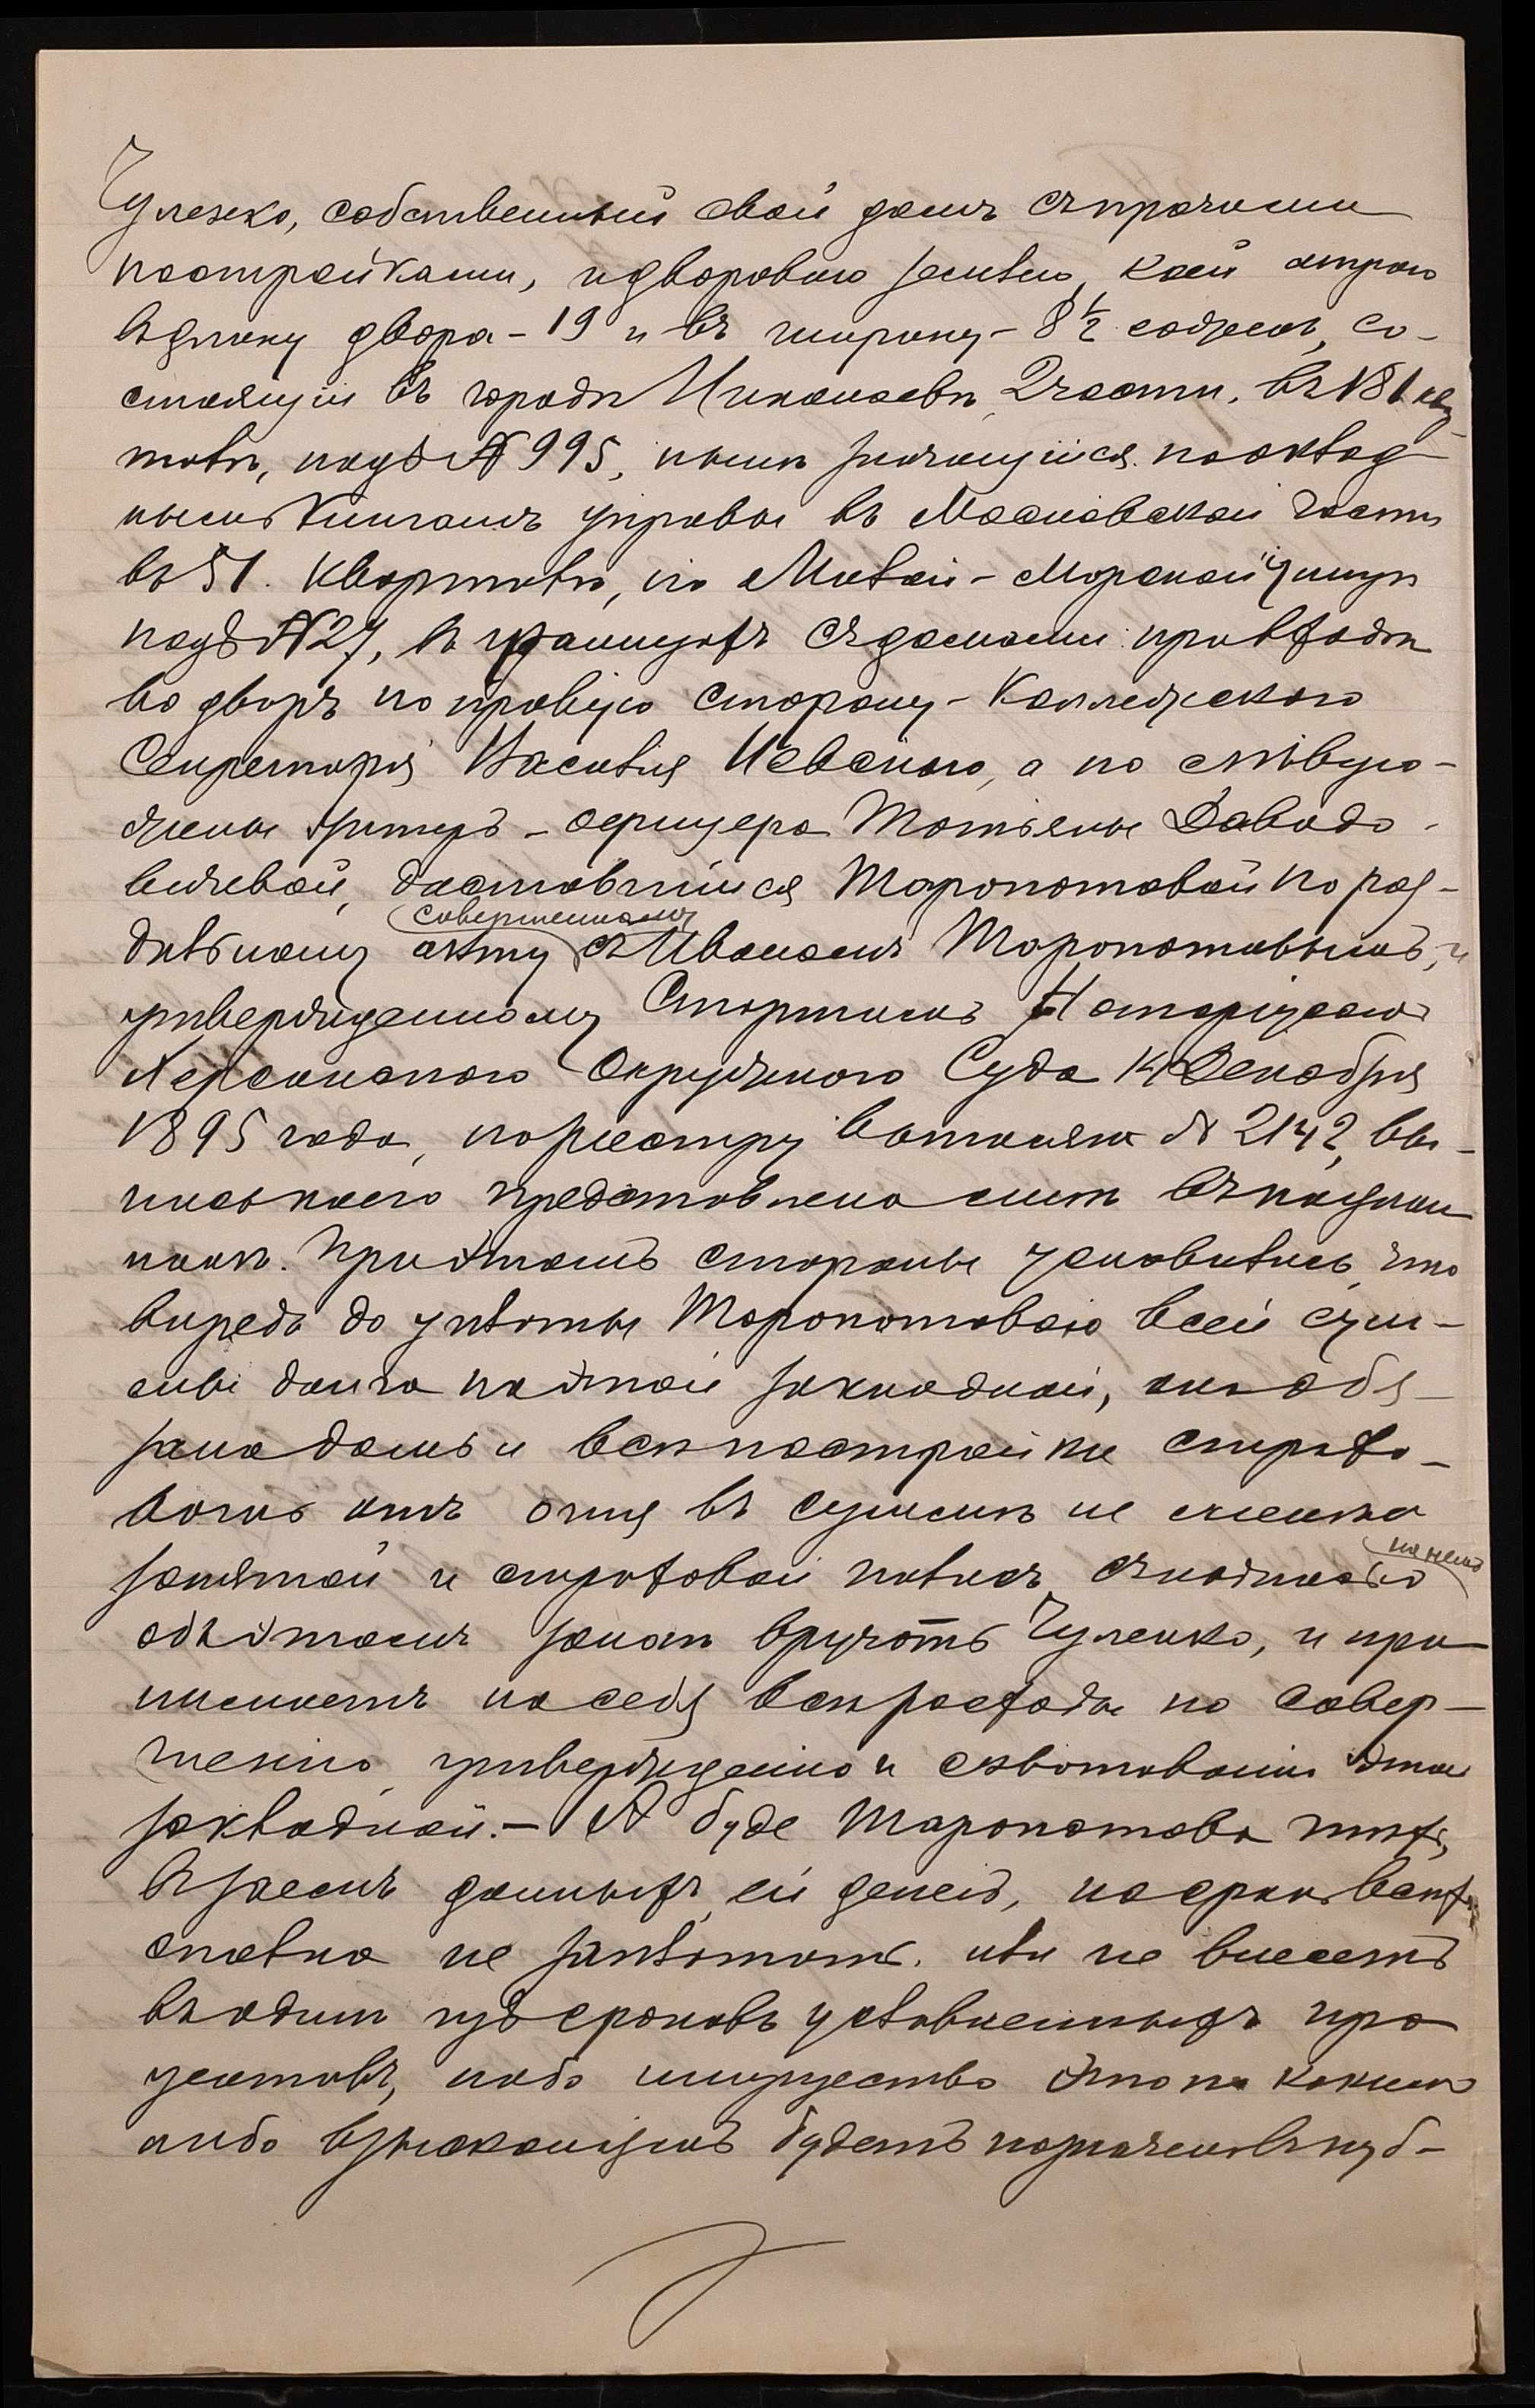 Чуленко, собственный свой домъ съ прочими
постройками, и дворовою землею, коей мѣрою
въ длину двора – 19 и въ ширину – 8½ сажень, со-
стоящій въ городѣ Николаевѣ, 2 части, въ 181 квар-
талѣ, подъ № 995, нынѣ значащійся по оклад-
нымъ книгамъ управы въ Московской части
въ 51. кварталѣ, по Малой-Морской улицѣ
подъ № 27, въ границахъ съ домами: при входѣ
во дворъ по правую сторону – Коллежскаго
Секретаря Василія Невскаго, а по лѣвую –
жены унтеръ-офицера Татьяны Давидо-
вичевой, доставшійся Таропатовой по раз-
дѣльному акту совершенному съ Иваномъ Таропатовымъ, и
утвержденному Старшимъ Нотаріусомъ
Херсонскаго Окружнаго Суда 14 Декабря
1895 года, по реестру вотчинъ № 2142, вы-
пись коего представлена мнѣ въ подлин-
никѣ. При этомъ стороны условились, что
впредь до уплаты Таропатовою всей сум-
мы долга по этой закладной, она обя-
зана домъ и всѣ постройки страхо-
вать отъ огня въ суммѣ не менѣе
занятой и страховой полисъ, съ надписью на немъ
объ этомъ залогѣ вручать Чуленко, и при-
нимаетъ на себя всѣ расходы по совер-
шенію, утвержденію и оплатованію этой
закладной. – А буде Таропатова тѣхъ,
въ заемъ данныхъ ей денегъ, на срокъ всѣхъ
сполна не заплатитъ, или не внесетъ
въ одинъ изъ сроковъ условленныхъ про-
центовъ, либо имущество это по какимъ
либо взысканіямъ будетъ назначено въ пуб-